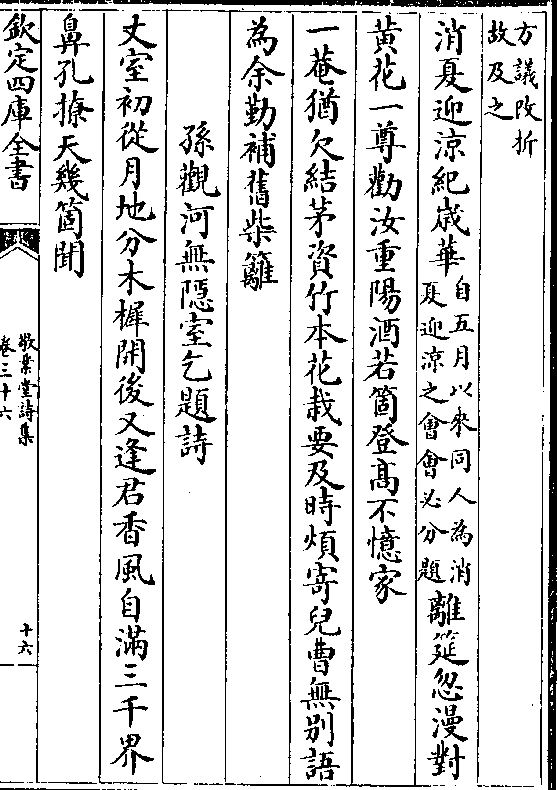 方議改折
故及之
消夏迎涼紀嵗華自五月以來同人為消
夏迎涼之會會必分題離筵忽漫對
黄花一尊勸汝重陽酒若箇登髙不憶家
一菴猶欠結茅資竹本花栽要及時煩寄兒曹無别語
為余勤補舊柴籬
孫觀河無隱室乞題詩
丈室初從月地分木樨開後又逢君香風自滿三千界
鼻孔撩天幾箇聞
欽定四庫全書
敬業堂詩集
卷三十六
十六